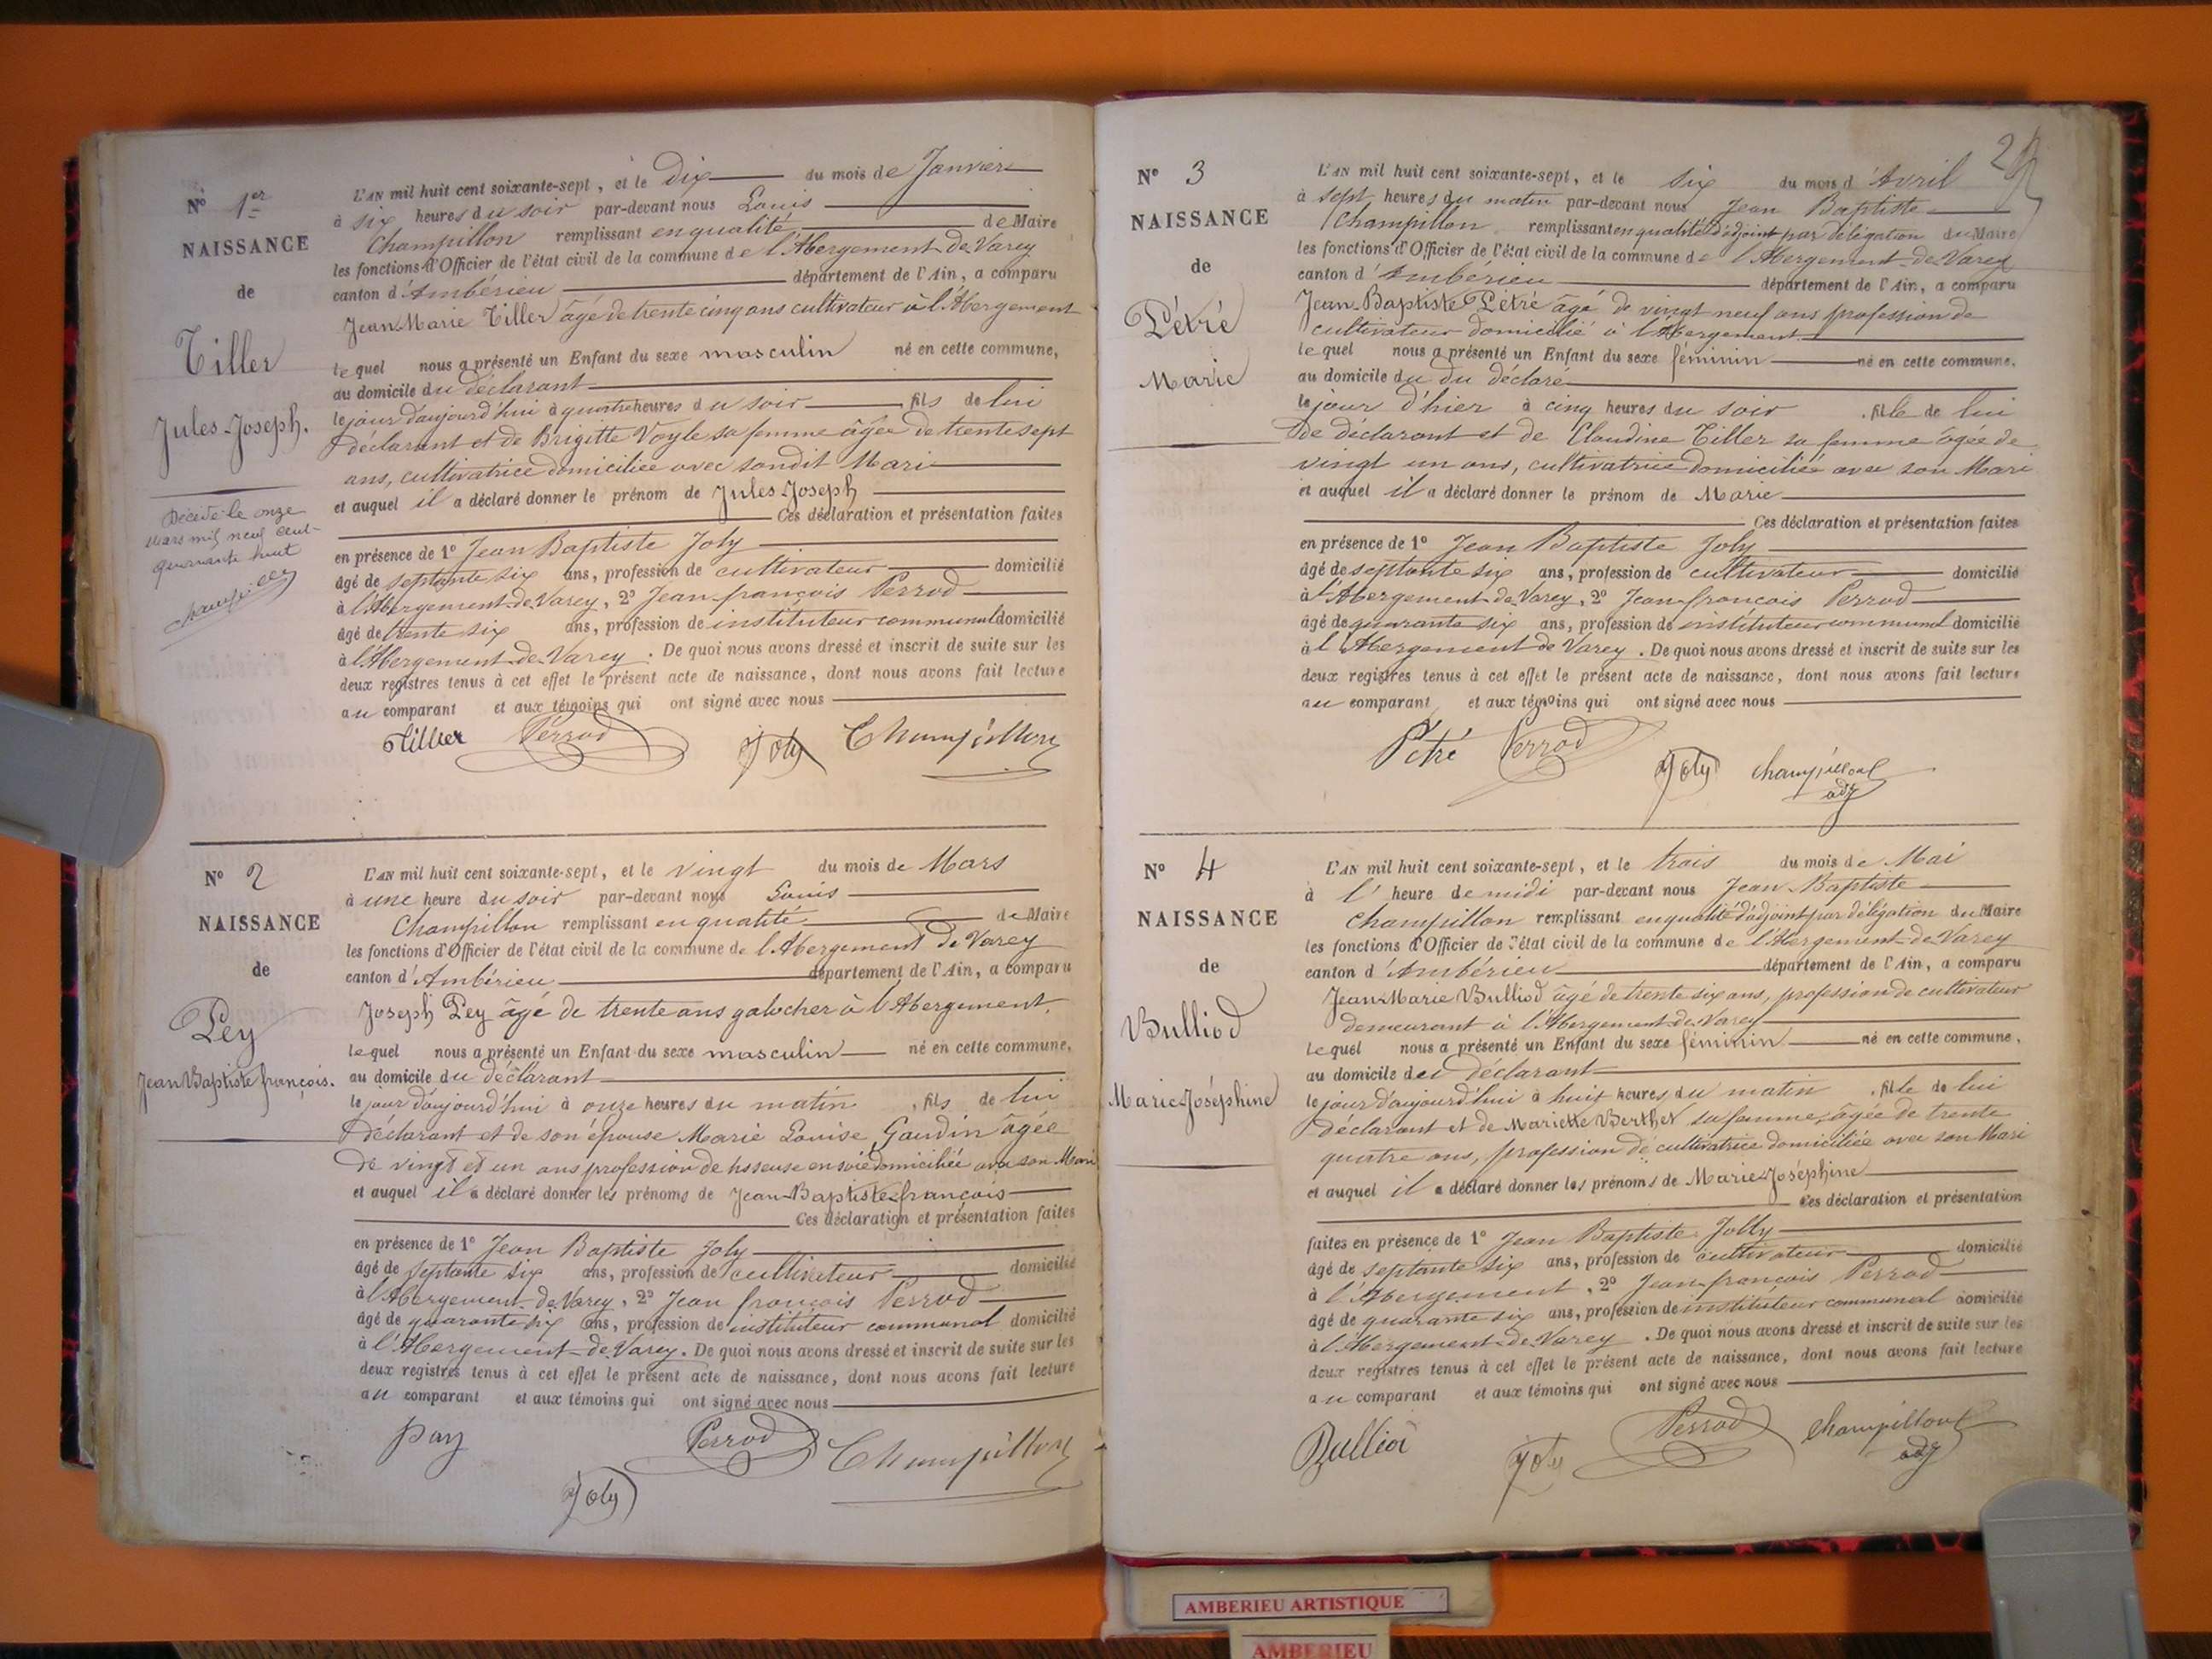 Nº 1er
NAISSANCE
de
Tiller
Jules-Joseph.
Décédé le onze
Mars mil neuf cent-
quarante huit
L'AN mil huit cent soixante-sept, et le Dix du mois de Janvier
à six heures du soir par-devant nous Louis
Champillon remplissant en qualité de Maire
les fonctions d'Officier de l'état civil de la commune de l'Abergement-de-Varey
canton d'Ambérieu département de l'Ain, a comparu
Jean-Marie Tiller âgé de trente cinq ans cultivateur à l'Abergement
lequel nous a présenté un Enfant du sexe masculin né en cette commune,
au domicile du déclarant
le jour d'aujourd'hui à quatre heures du soir fils de lui
déclarant et de Brigitte Voyle sa femme âgée de trente sept
ans, cultivatrice domiciliée avec sondit Mari
et auquel il a déclaré donner le prénom de Jules Joseph
Ces déclaration et présentation faites
en présence de 1º Jean Baptiste Joly
âgé de septante six ans, profession de cultivateur domicilié
à l'Abergement-de-Varey, 2º Jean-françois Perrod
âgé de trente six ans, profession de instituteur communal domicilié
à l'Abergement-de-Varey. De quoi nous avons dressé et inscrit de suite sur les
deux registres tenus à cet effet le présent acte de naissance, dont nous avons fait lecture
au comparant et aux témoins qui ont signé avec nous
Tillier Perrod Joly Champillon
Nº 2
NAISSANCE
de
Pey
Jean Baptiste françois.
L'AN mil huit cent soixante-sept, et le vingt du mois de Mars
à une heure du soir par-devant nous Louis
Champillon remplissant en qualité de Maire
les fonctions d'Officier de l'état civil de la commune de l'Abergement de Varey
canton d'Ambérieu département de l'Ain, a comparu
Joseph Pey âgé de trente ans galocher à l'Abergement.
lequel nous a présenté un Enfant du sexe masculin né en cette commune,
au domicile du déclarant
le jour d'aujourd'hui à onze heures du matin, fils de lui
déclarant et de son épouse Marie Louise Gaudin âgée
de vingt et un ans profession de tisseuse en soie domiciliée avec son Mari
et auquel il a déclaré donner les prénoms de Jean-Baptiste françois
Ces déclaration et présentation faites
en présence de 1º Jean Baptiste Joly
âgé de septante six ans, profession de cultivateur domicilié
à l'Abergement-de-Varey, 2º Jean françois Perrod
âgé de quarante six ans, profession de instituteur communal domicilié
à l'Abergement-de-Varey. De quoi nous avons dressé et inscrit de suite sur les
deux registres tenus à cet effet le présent acte de naissance, dont nous avons fait lecture
au comparant et aux témoins qui ont signé avec nous
pay Perrod Champillon
Joly
Nº 3
NAISSANCE
de
Pétré
Marie
L'AN mil huit cent soixante-sept, et le six du mois d'Avril
à sept heures du matin par-devant nous Jean Baptiste
Champillon remplissant en qualité d'adjoint par délégation du Maire
les fonctions d'Officier de l'état civil de la commune de l'Abergement-de-Varey
canton d'Ambérieu département de l'Ain, a comparu
Jean-Baptiste Pétré âgé de vingt neuf ans profession de
cultivateur domicilié à l'Abergement.
lequel nous a présenté un Enfant du sexe féminin né en cette commune.
au domicile du du déclaré
le jour d'hier à cinq heures du soir, fille de lui
de déclarant et de Claudine Tiller sa femme âgée de
vingt un ans, cultivatrice domiciliée avec son Mari
et auquel il a déclaré donner le prénom de Marie
Ces déclaration et présentation faites
en présence de 1º Jean Baptiste Joly
âgé de septante six ans, profession de cultivateur domicilié
à l'Abergement-de-Varey, 2º Jean-françois Perrod
âgé de quarante six ans, profession de instituteur communal domicilié
à l'Abergement de Varey. De quoi nous avons dressé et inscrit de suite sur les
deux registres tenus à cet effet le présent acte de naissance, dont nous avons fait lecture
au comparant et aux témoins qui ont signé avec nous
Pétré Perrod Joly Champillon
adj
Nº 4
NAISSANCE
de
Bulliod
Marie-Joséphine
L'AN mil huit cent soixante-sept, et le trois du mois de Mai
à l' heure de midi par-devant nous Jean-Baptiste
Champillon remplissant en qualité d'adjoint par délégation du Maire
les fonctions d'Officier de l'état civil de la commune de l'Abergement-de-Varey
canton d'Ambérieu département de l'Ain, a comparu
Jean-Marie Bulliod âgé de trente six ans, profession de cultivateur
demeurant à l'Abergement-de-Varey
lequel nous a présenté un Enfant du sexe féminin né en cette commune,
au domicile du déclarant
le jour d'aujourd'hui à huit heures du matin, fille de lui
déclarant et de Mariette Berthet sa femme, âgée de trente
quatre ans, profession de cultivatrice domiciliée avec son Mari
et auquel il a déclaré donner les prénoms de Marie-Joséphine
Ces déclaration et présentation
faites en présence de 1º Jean Baptiste Jolly
âgé de septante six ans, profession de cultivateur domicilié
à l'Abergement, 2º Jean-françois Perrod
âgé de quarante six ans, profession de instituteur communal domicilié
à l'Abergement-de-Varey. De quoi nous avons dressé et inscrit de suite sur les
deux registres tenus à cet effet le présent acte de naissance, dont nous avons fait lecture
au comparant et aux témoins qui ont signé avec nous
Bulliod Joly Perrod Champillon
adj
AMBERIEU ARTISTIQUE
AMBERIEU